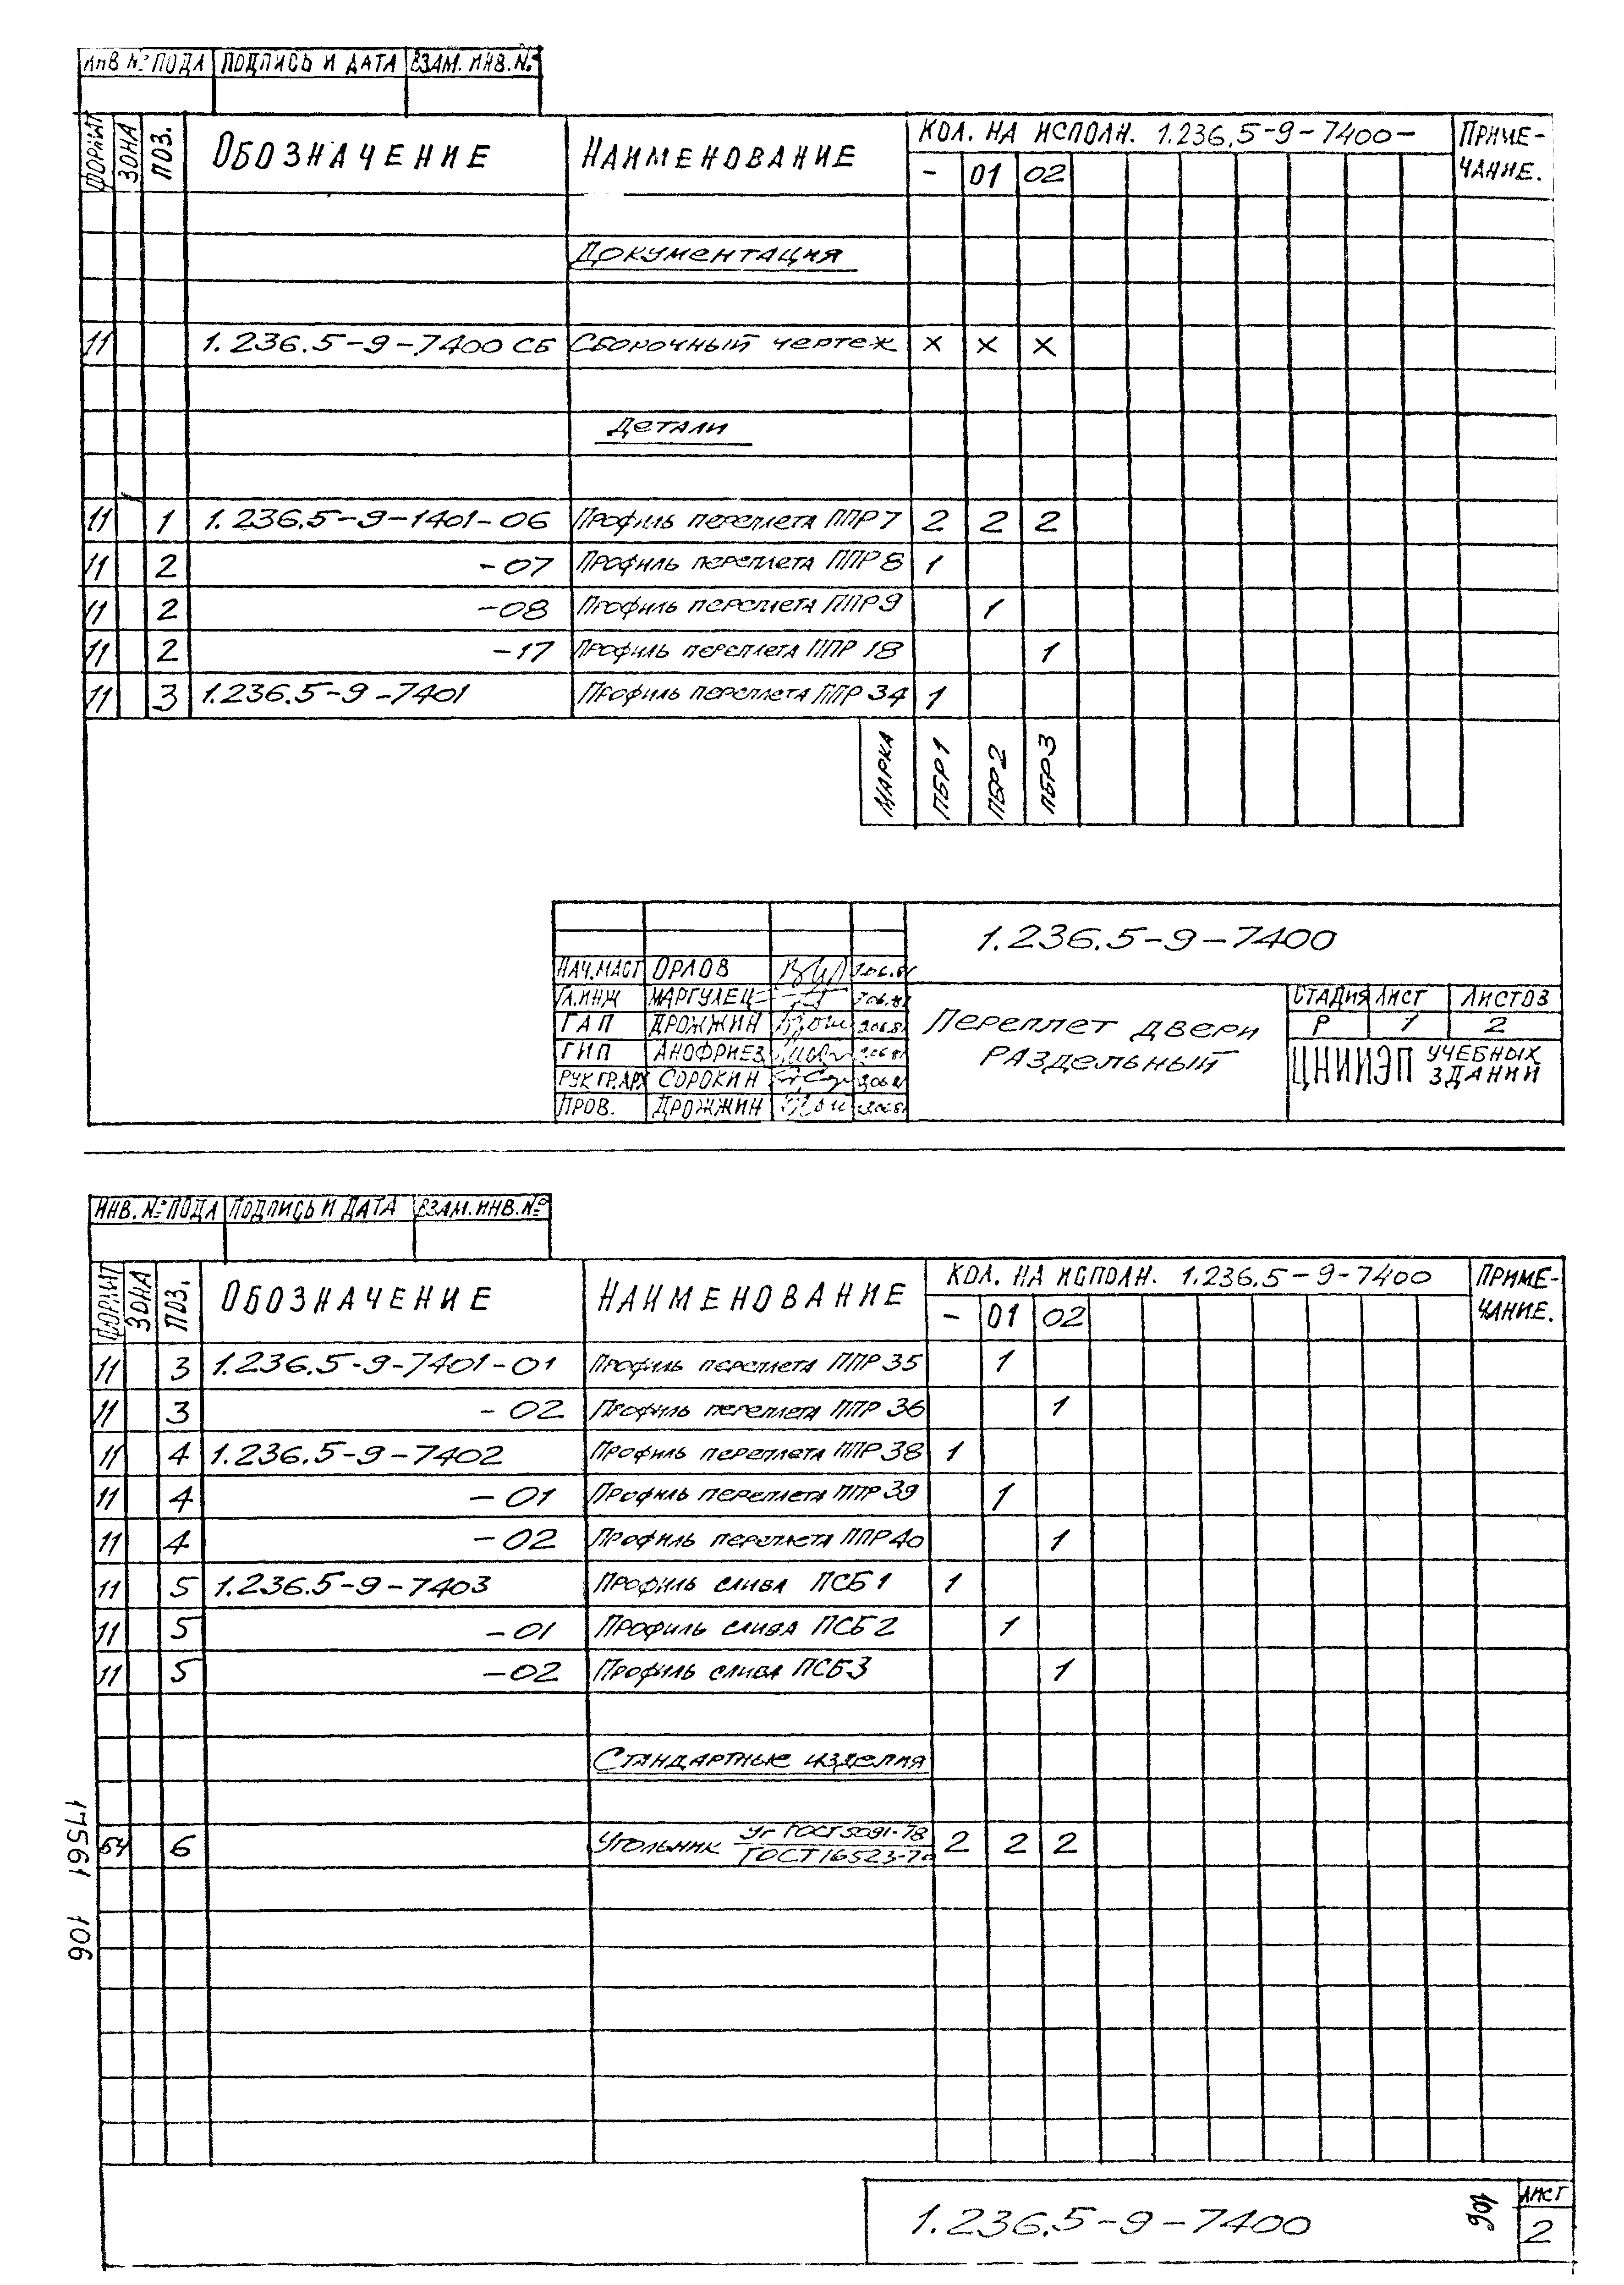 ИНВ № ПОДЛ ПОДПИСЬ И ДАТА ВЗАМ. ИНВ. №
ФОРМАТ ЗОНА ПОЗ. ОБОЗНАЧЕНИЕ НАИМЕНОВАНИЕ КОЛ. НА ИСПОЛН. 1.236.5-9-7400- ПРИМЕ-
- 01 02 ЧАНИЕ.
Документация
11 1.236.5-9-7400 СБ Сборочный чертеж × × ×
Детали
11 1 1.236.5-9-1401-06 Профиль переплета ППР 7 2 2 2
11 2 -07 Профиль переплета ППР 8 1
11 2 -08 Профиль переплета ППР 9 1
11 2 -17 Профиль переплета ППР 18 1
11 3 1.236.5-9-7401 Профиль переплета ППР 34 1
МАРКА ПБР1 ПБР2 ПБР3
1.236.5-9-7400
НАЧ.МАСТ ОРЛОВ
ГЛ.ИНЖ МАРГУЛЕЦ СТАДИЯ ЛИСТ ЛИСТОВ
ГАП ДРОЖЖИН Переплет двери Р 1 2
ГИП АНОФРИЕВ раздельный ЦНИИЭП УЧЕБНЫХ
РУК ГР.АРХ СОРОКИН ЗДАНИЙ
ПРОВ. ДРОЖЖИН
ИНВ. № ПОДЛ ПОДПИСЬ И ДАТА ВЗАМ. ИНВ. №
ФОРМАТ ЗОНА ПОЗ. ОБОЗНАЧЕНИЕ НАИМЕНОВАНИЕ КОЛ. НА ИСПОЛН. 1.236.5-9-7400 ПРИМЕ-
- 01 02 ЧАНИЕ.
11 3 1.236.5-9-7401-01 Профиль переплета ППР 35 1
11 3 -02 Профиль переплета ППР 36 1
11 4 1.236.5-9-7402 Профиль переплета ППР 38 1
11 4 -01 Профиль переплета ППР 39 1
11 4 -02 Профиль переплета ППР 40 1
11 5 1.236.5-9-7403 Профиль слива ПСБ1 1
11 5 -01 Профиль слива ПСБ2 1
11 5 -02 Профиль слива ПСБ3 1
Стандартные изделия
БЧ 6 Угольник Уг ГОСТ 5091-78 2 2 2
ГОСТ 16523-70
17561 106
1.236.5-9-7400 106 ЛИСТ
2